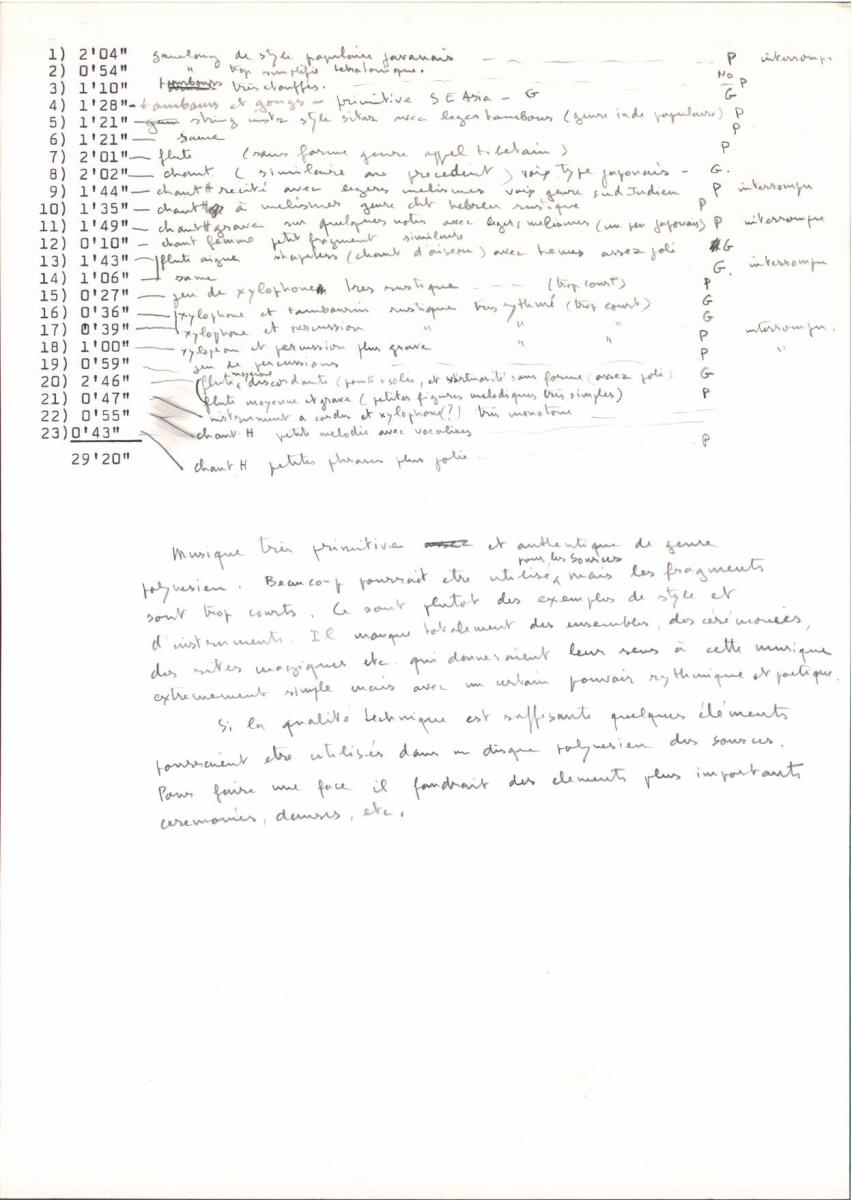 1) 2'04" gamelang de style populaire javanais P interrompu
2) 0'54" " trop simplifié tetratonique. No
3) 1'10" tambours très chauffés. P
4) 1'28" - tambours et gongs - primitive SE Asia - G G
5) 1'21" - string instr style sitar avec legers tambours (genre inde populaire) P
6) 1'21" - same P
7) 2'01" - flute (sans forme genre appel tibetain) P
8) 2'02" - chant (similaire au precedent) voix type japonais - G.
9) 1'44" - chant H recité avec legers melismes voix genre sud Indien P interrompu
10) 1'35" - chant H à melismes genre cht hebreu rustique P
11) 1'49" - chant H grave sur quelques notes avec legers melismes (un peu japonais) P interrompu
12) 0'10" - chant femme petit fragment similaire
13) 1'43" flute aigue shapeless (chant d'oiseau) avec assez joli G
14) 1'06" - same G. interrompu
15) 0'27" - jeu de xylophone tres rustique (trop court) P
16) 0'36" xylophone et tambourin rustiques tres rythmé (trop court) G
17) 0'39" xylophone et percussion " " " G
18) 1'00" - xylophone et percussion plus grave " " P interrompu.
19) 0'59" jeu de percussions P "
20) 2'46" flute moyenne discordante (solis, et virtuosité sans forme (assez joli) G
21) 0'47" flute moyenne et grave (petites figures melodiques très simples) P
22) 0'55" instrument a cordes et xylophone(?) très monotone
23) 0'43" chant H petite melodie avec vocalises
29'20" chant H petites phrases plus jolie P
Musique très primitive et authentique de genre
polynesien. Beaucoup pourrait etre utilisé pour les sources, mais les fragments
sont trop courts. Ce sont plutot des exemples de style et
d'instruments. Il manque totalement des ensembles, des cérémonies,
des rites magiques etc. qui donneraient leur sens à cette musique
extremement simple mais avec un certain pouvoir rythmique et poetique.
Si la qualité technique est suffisante quelques éléments
pourraient etre utilisés dans un disque polynesien des sources.
Pour faire une face il faudrait des elements plus importants
ceremonies, danses, etc.